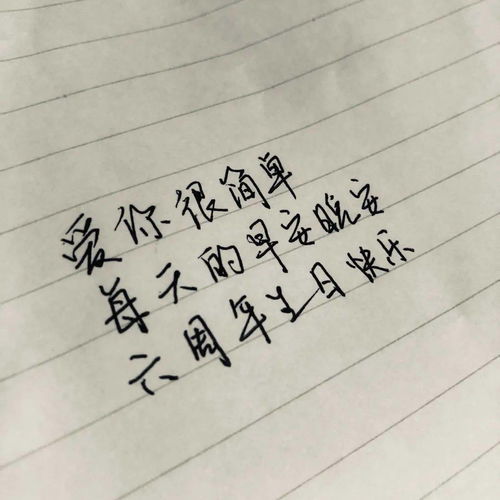 爱你很简单
每天的早安晚安
六周年生日快乐